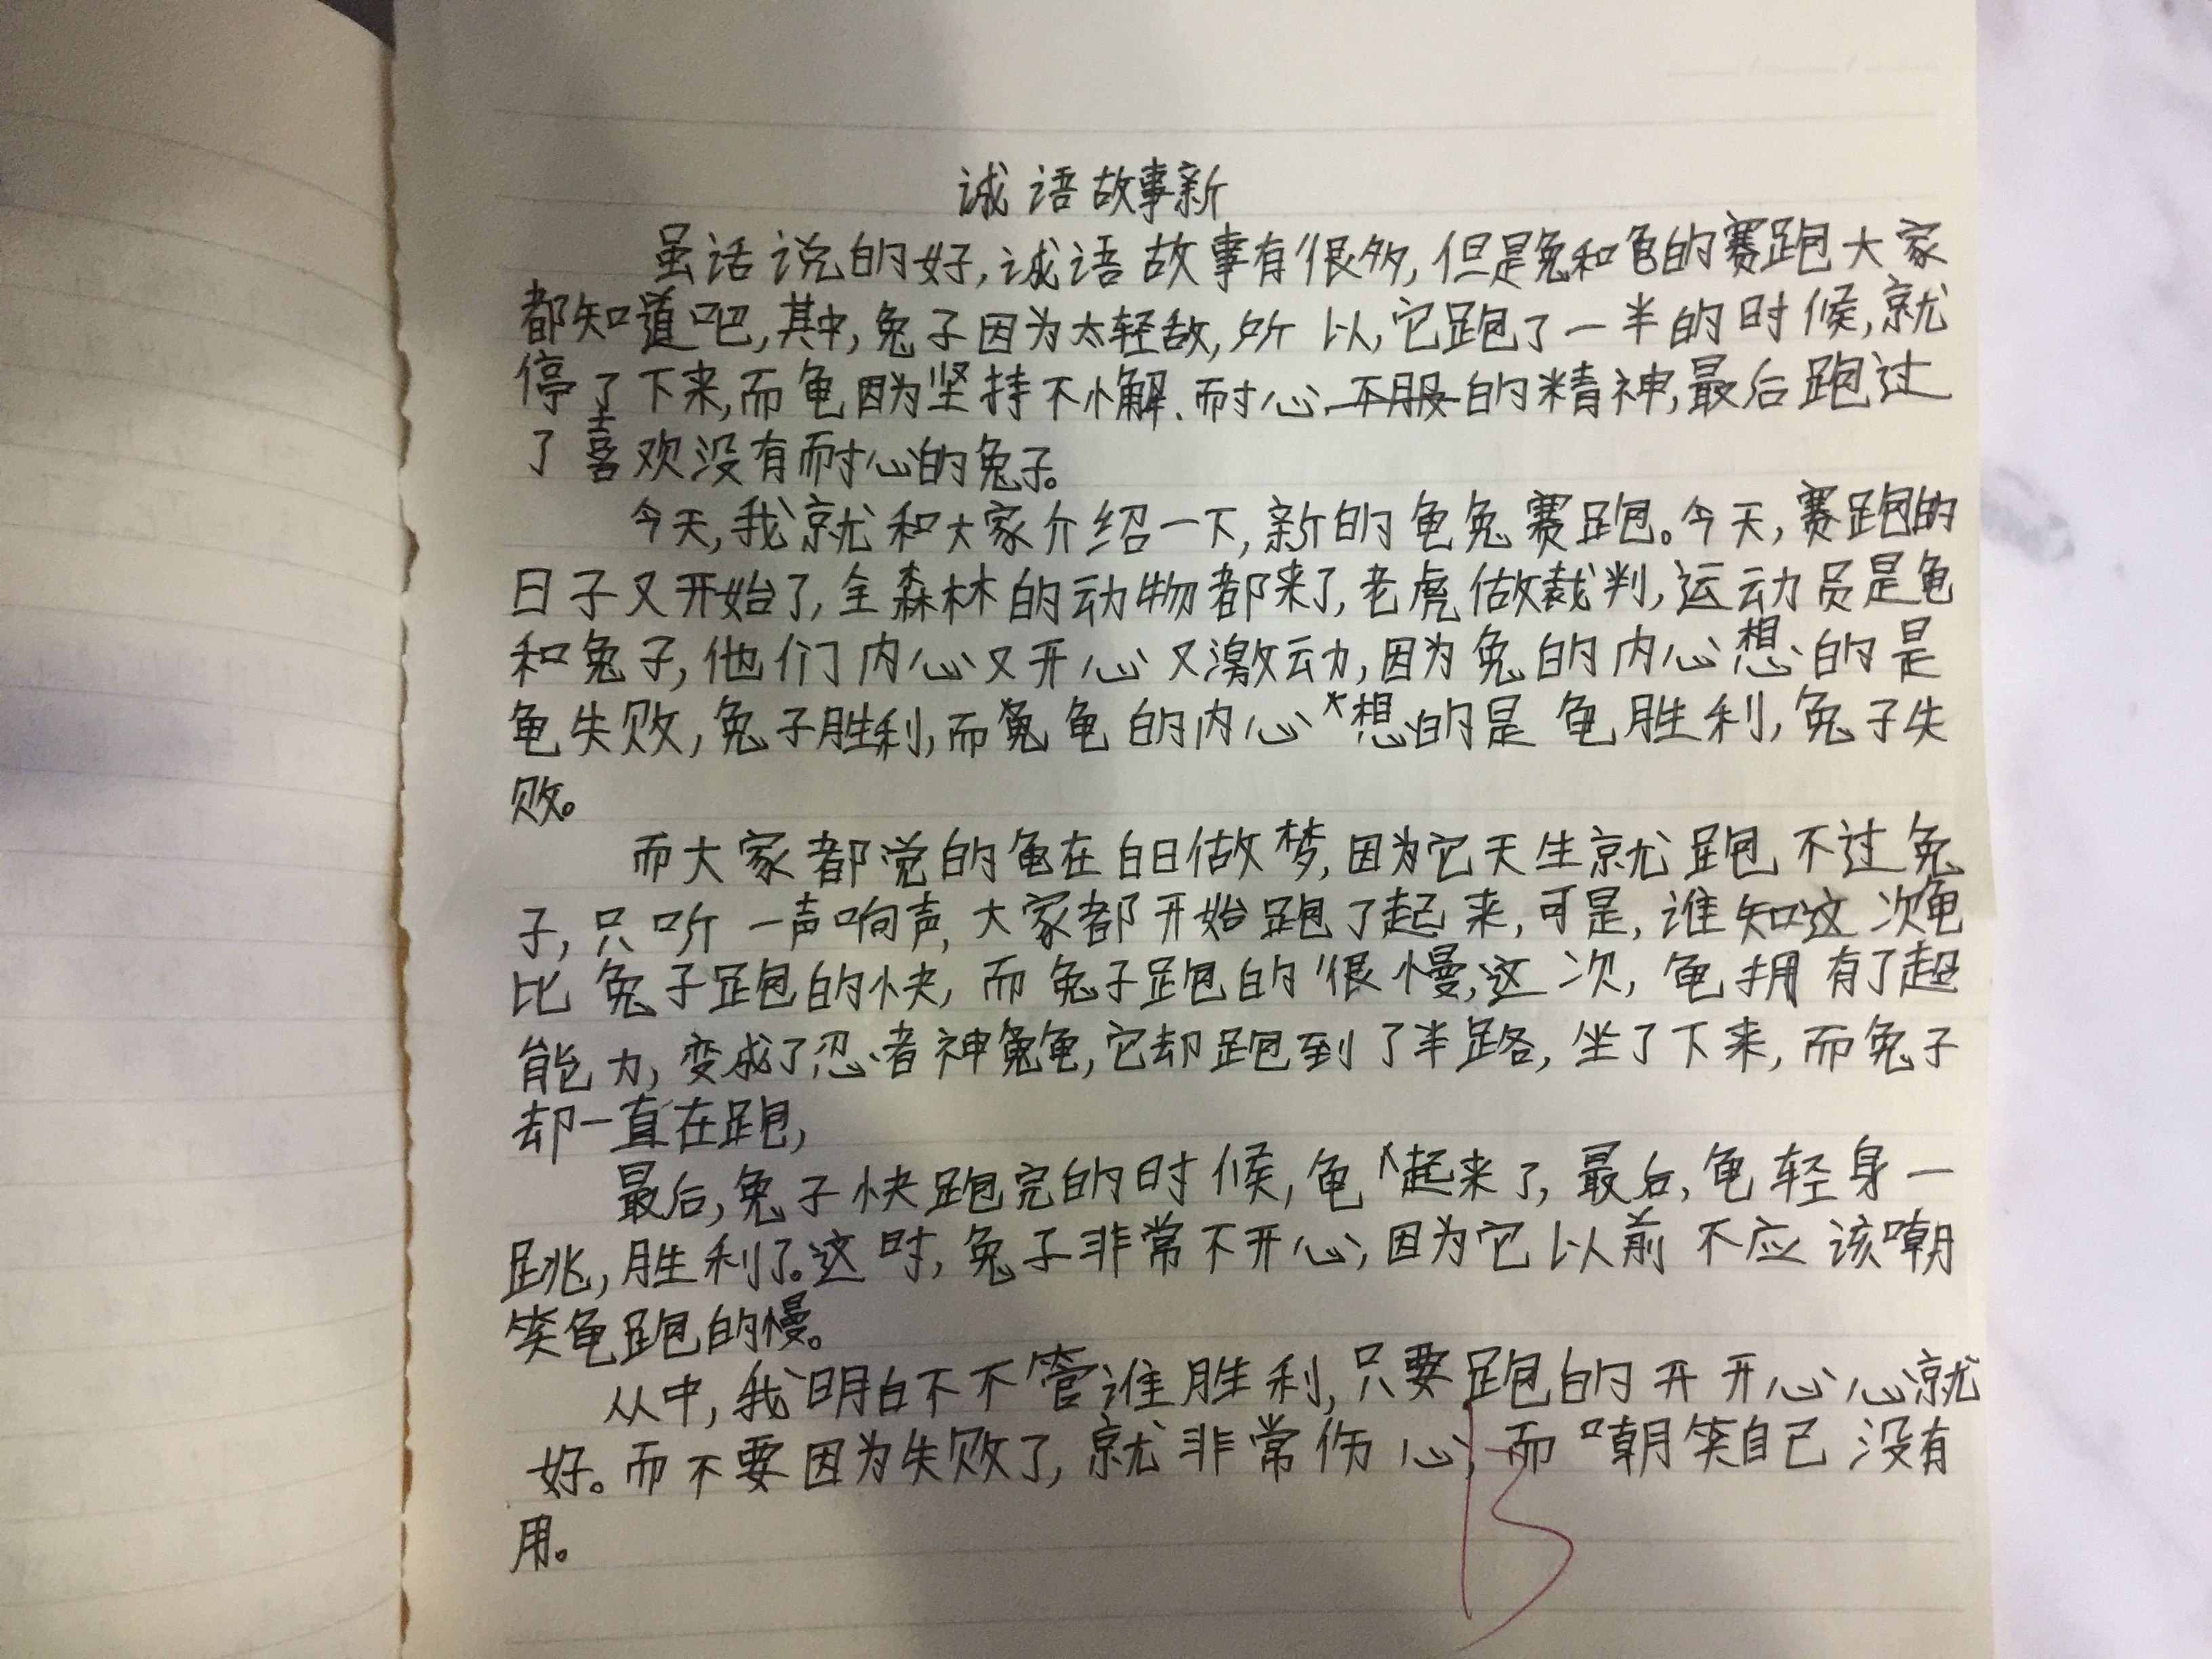 诚语故事新
虽话说的好,诚语故事有很多,但是兔和龟的赛跑大家
都知道吧,其中,兔子因为太轻敌,所以,它跑了一半的时候,就
停了下来,而龟因为坚持不懈、耐心的精神,最后跑过
了喜欢没有耐心的兔子。
今天,我就和大家介绍一下,新的龟兔赛跑。今天,赛跑的
日子又开始了,全森林的动物都来了,老虎做裁判,运动员是龟
和兔子,他们内心又开心又激动,因为兔的内心想的是
龟失败,兔子胜利,而龟的内心想的是龟胜利,兔子失
败。
而大家都觉的龟在白日做梦,因为它天生就跑不过兔
子,只听一声响声,大家都开始跑了起来,可是,谁知这次龟
比兔子跑的快,而兔子跑的很慢,这次,龟拥有了超
能力,变成了忍者神龟,它却跑到了半路,坐了下来,而兔子
却一直在跑,
最后,兔子快跑完的时候,龟起来了,最后,龟轻身一
跳,胜利了。这时,兔子非常不开心,因为它以前不应该嘲
笑龟跑的慢。
从中,我明白不不管谁胜利,只要跑的开开心心就
好。而不要因为失败了,就非常伤心,而嘲笑自己没有
用。